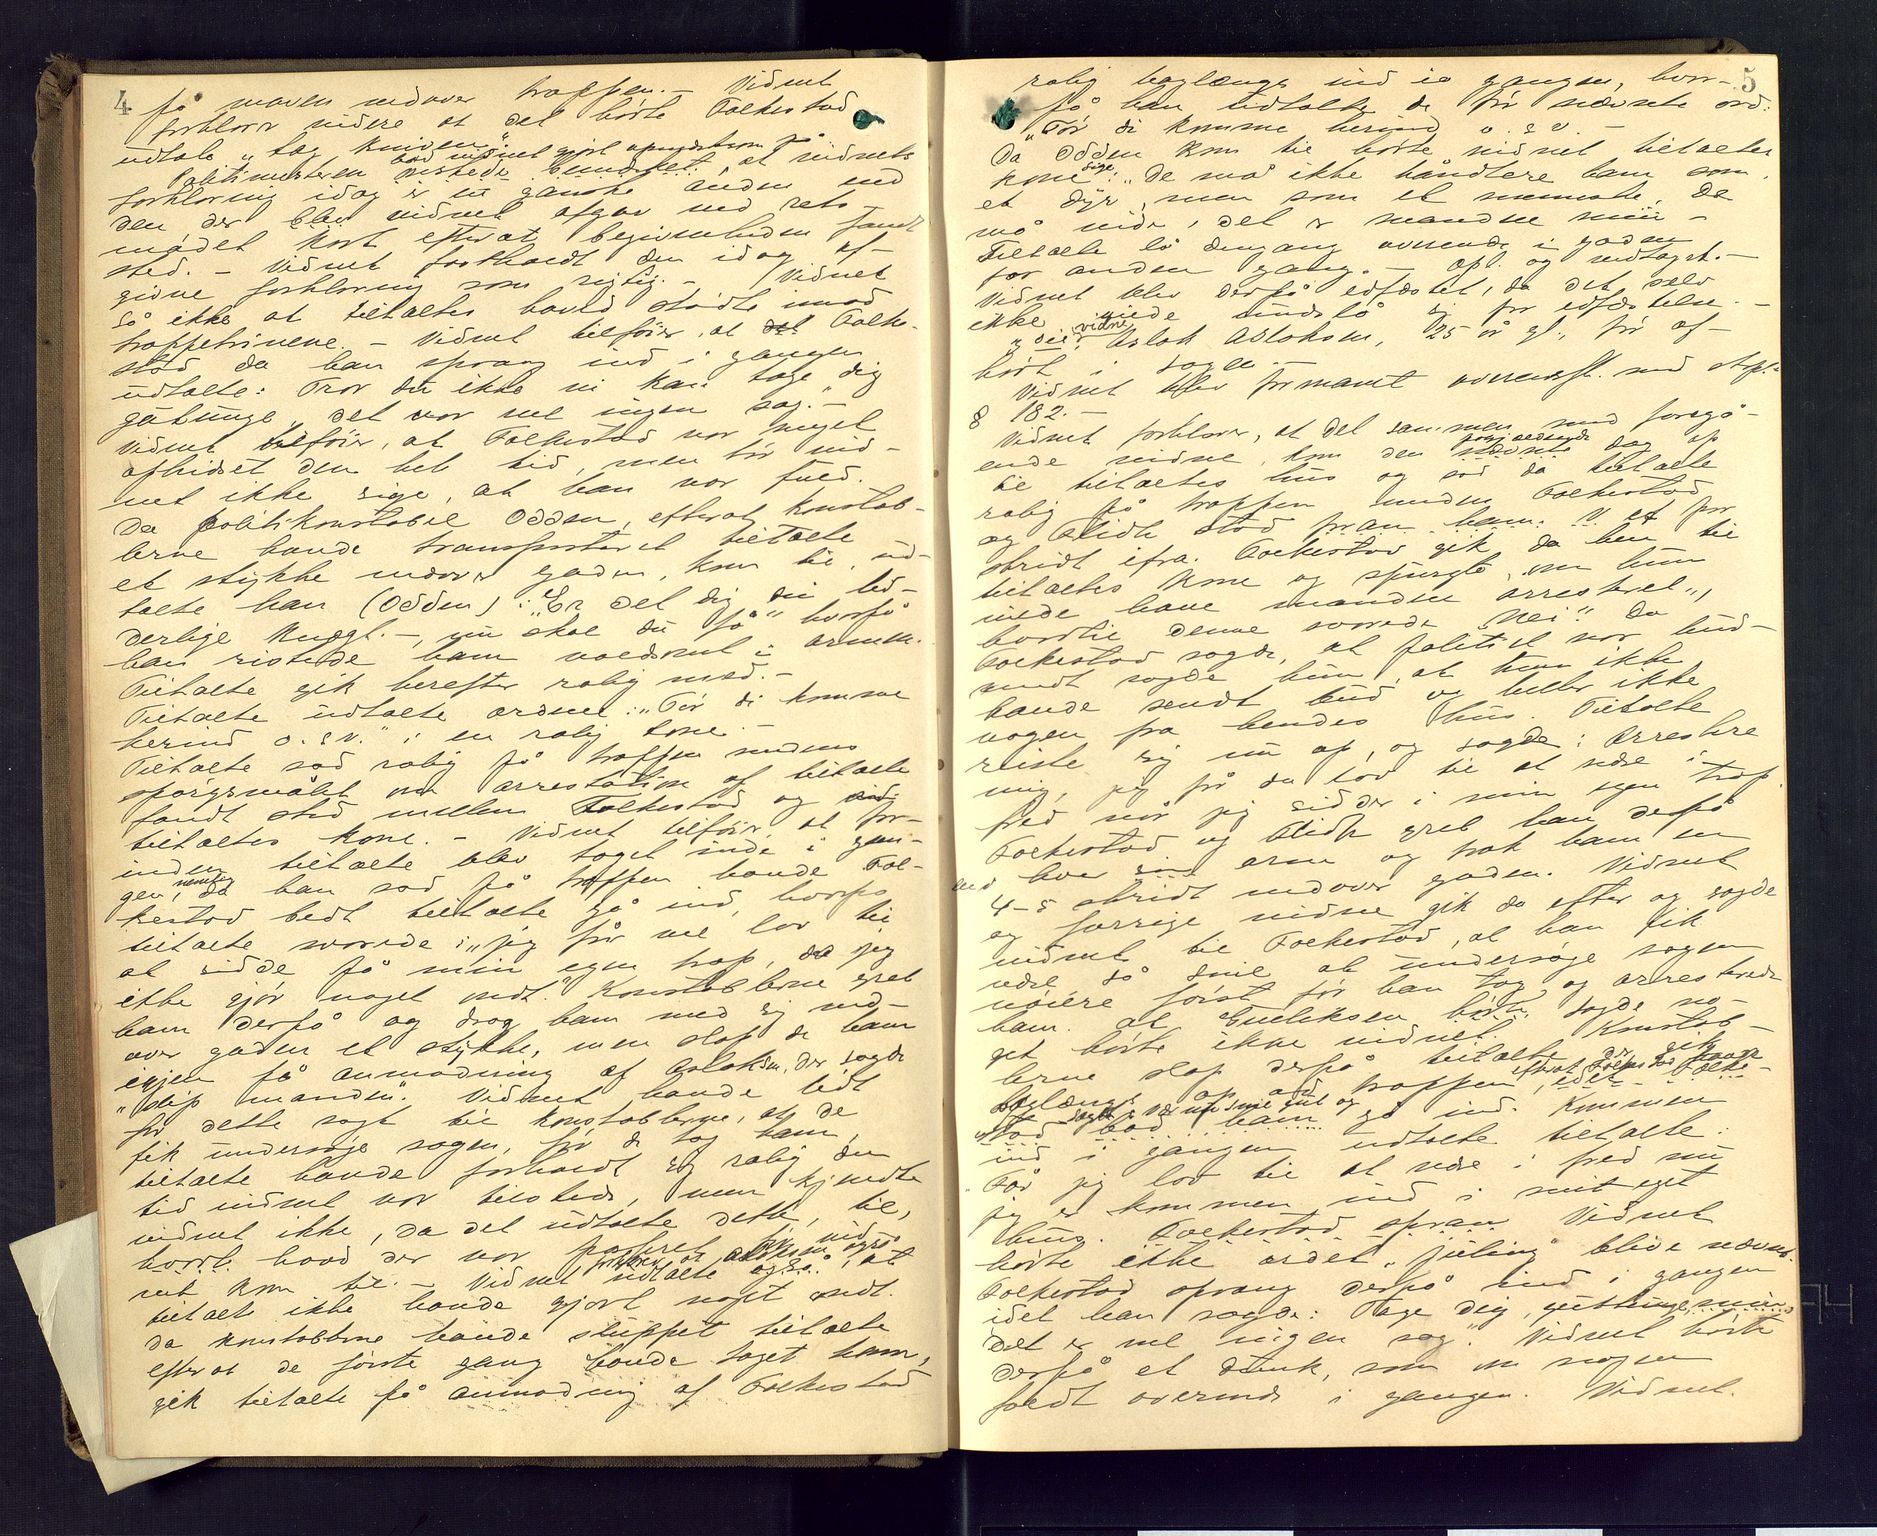 4
på maven nedover trappen. – Vidnet
forklarer videre at det hørte Folkestad
udtale "tag kniven".
Politimesteren bad vidnet gjort opmærksom på
at vidnets
forklaring idag er en ganske anden end
den, der blev vidnet afgav ved rets-
mødet kort efterat begivenheden fandt
sted. – Vidnet fastholdt den idag af-
givne forklaring som rigtig. – Vidnet
så ikke at tiltaltes hoved stødte imod
trappetrinene. – Vidnet tilføier, at det Folke-
stad da han sprang ind i gangen
udtalte: Tror du ikke vi kan tage dig
gåtunge, det var vel ingen sag. –
Vidnet tilføier, at Folkestad var meget
ophidset den hele tid, men tør vid-
net ikke sige, at han var fuld.
Da politikonstabel Odden, efterat konstab-
lerne havde transporteret tiltalte
et stykke nedover gaden, kom til, ud-
talte han (Odden): "Er det dig din lid-
derlige knægt. –, nu skal du få" horpå
han ristede ham voldsomt i armen.
Tiltalte gik herefter rolig med. –
Tiltalte udtalte ordene: "Tør di komme
herind o.s.v." i en rolig tone. –
Tiltalte sad rolig på trappen medens
spørgsmålet om arrestation af tiltalte
fandt sted mellem Folkestad og
tiltaltes kone. – Vidnet tilføier, at for-
inden tiltalte blev taget inde i gan-
gen, nemlig da han sad på trappen havde Fol-
kestad bedt tiltalte gå ind, horpå
tiltalte svarede: "jeg får vel lov til
at sidde på min egen trap, da jeg
ikke gjør noget ondt." Konstablerne greb
ham derpå og drog ham med sig ned-
over gaden et stykke, men slap de ham
igjen på anmodning af Aslaksen, der sagde
"slip manden". Vidnet havde lidt
før dette sagt til konstablerne, at de
fik undersøge sagen, før de tog ham,
tiltalte havde forholdt sig rolig den
tid vidnet var tilstede, men kjendte
vidnet ikke, da det udtalte dette, til,
hvad der var passeret før vid-
net kom til. – Vidnet udtalte også, at
tiltalt ikke havde gjort noget ondt.
Da konstablerne havde sluppet tiltalte
efterat de første gang havde taget ham,
gik tiltalte på anmodning af Folkestad
5
rolig baglænge ind i gangen, hvor-
på han udtalte de før nævnte ord:
"Tør di komme herind o.s.v. –
Da Odden kom til hørte vidnet tiltaltes
kone sige: "De må ikke håndtere ham som
et dyr, men som et menneske, De
må vide, det er manden min –
Tiltalte lå dengang overende i gaden
for anden gang. – Opl. og vedtaget. –
Vidnet blev derpå edfæstet, da det selv
ikke vide undslå sig for edfæstelse. –
vidne Aslak Aslaksen, 25 år gl., før af-
hørt i sagen. –
Vidnet blev formanet overensst. med stpl.
§ 182. –
Vidnet forklarer, at det sammen med foregå-
ende vidne, kom den nævnte dag op
til tiltaltes hus og sad da tiltalte
rolig på trappen medens Folkestad
og Flidh stod foran ham. V. et par
skridt ifra. Folkestad gik da hen til
tiltaltes kone og spurgte, om hun
vilde have manden arresteret",
hvortil denne svarede "Nei". Da
Folkestad sagde, at politiet var bud-
sendt sagde hun, at hun ikke
havde sendt bud og heller ikke
nogen fra hendes hus. Tiltalte
reiste sig nu op, og sagde: Arrestere
mig, jeg får da lov til at være i
fred når jeg sidder i min egen trap.
Folkestad og Flidh greb han derpå
hver sin arm og trak ham en
4–5 skridt nedover gaden. Vidnet
og forrige vidne gik da efter og sagde
vidnet til Folkestad, at han fik
være så snil at undersøge sagen
nøiere først før han tog og arresterede
ham. At Emeliksen hørte, sagde no-
get hørte ikke vidnet. Konstab-
lerne slap derpå tiltalte, der gik
baglængs op ad trappen, efterat Folkestad havde
sagt: vær nu snil gut og gå ind. Kommen
ind i gangen udtalte tiltalte:
Får jeg lov til at være i fred nu
jeg er kommen ind i mit eget
hus. Folkestad sprang Vidnet
hørte ikke ordet "juling" blive nævnt.
Folkestad sprang derpå ind i gangen
idet han sagde: Tage dig,
det er vel ingen sag". Vidnet hørte
derpå et dunk, som om nogen
faldt overende i gangen. Vidnet.